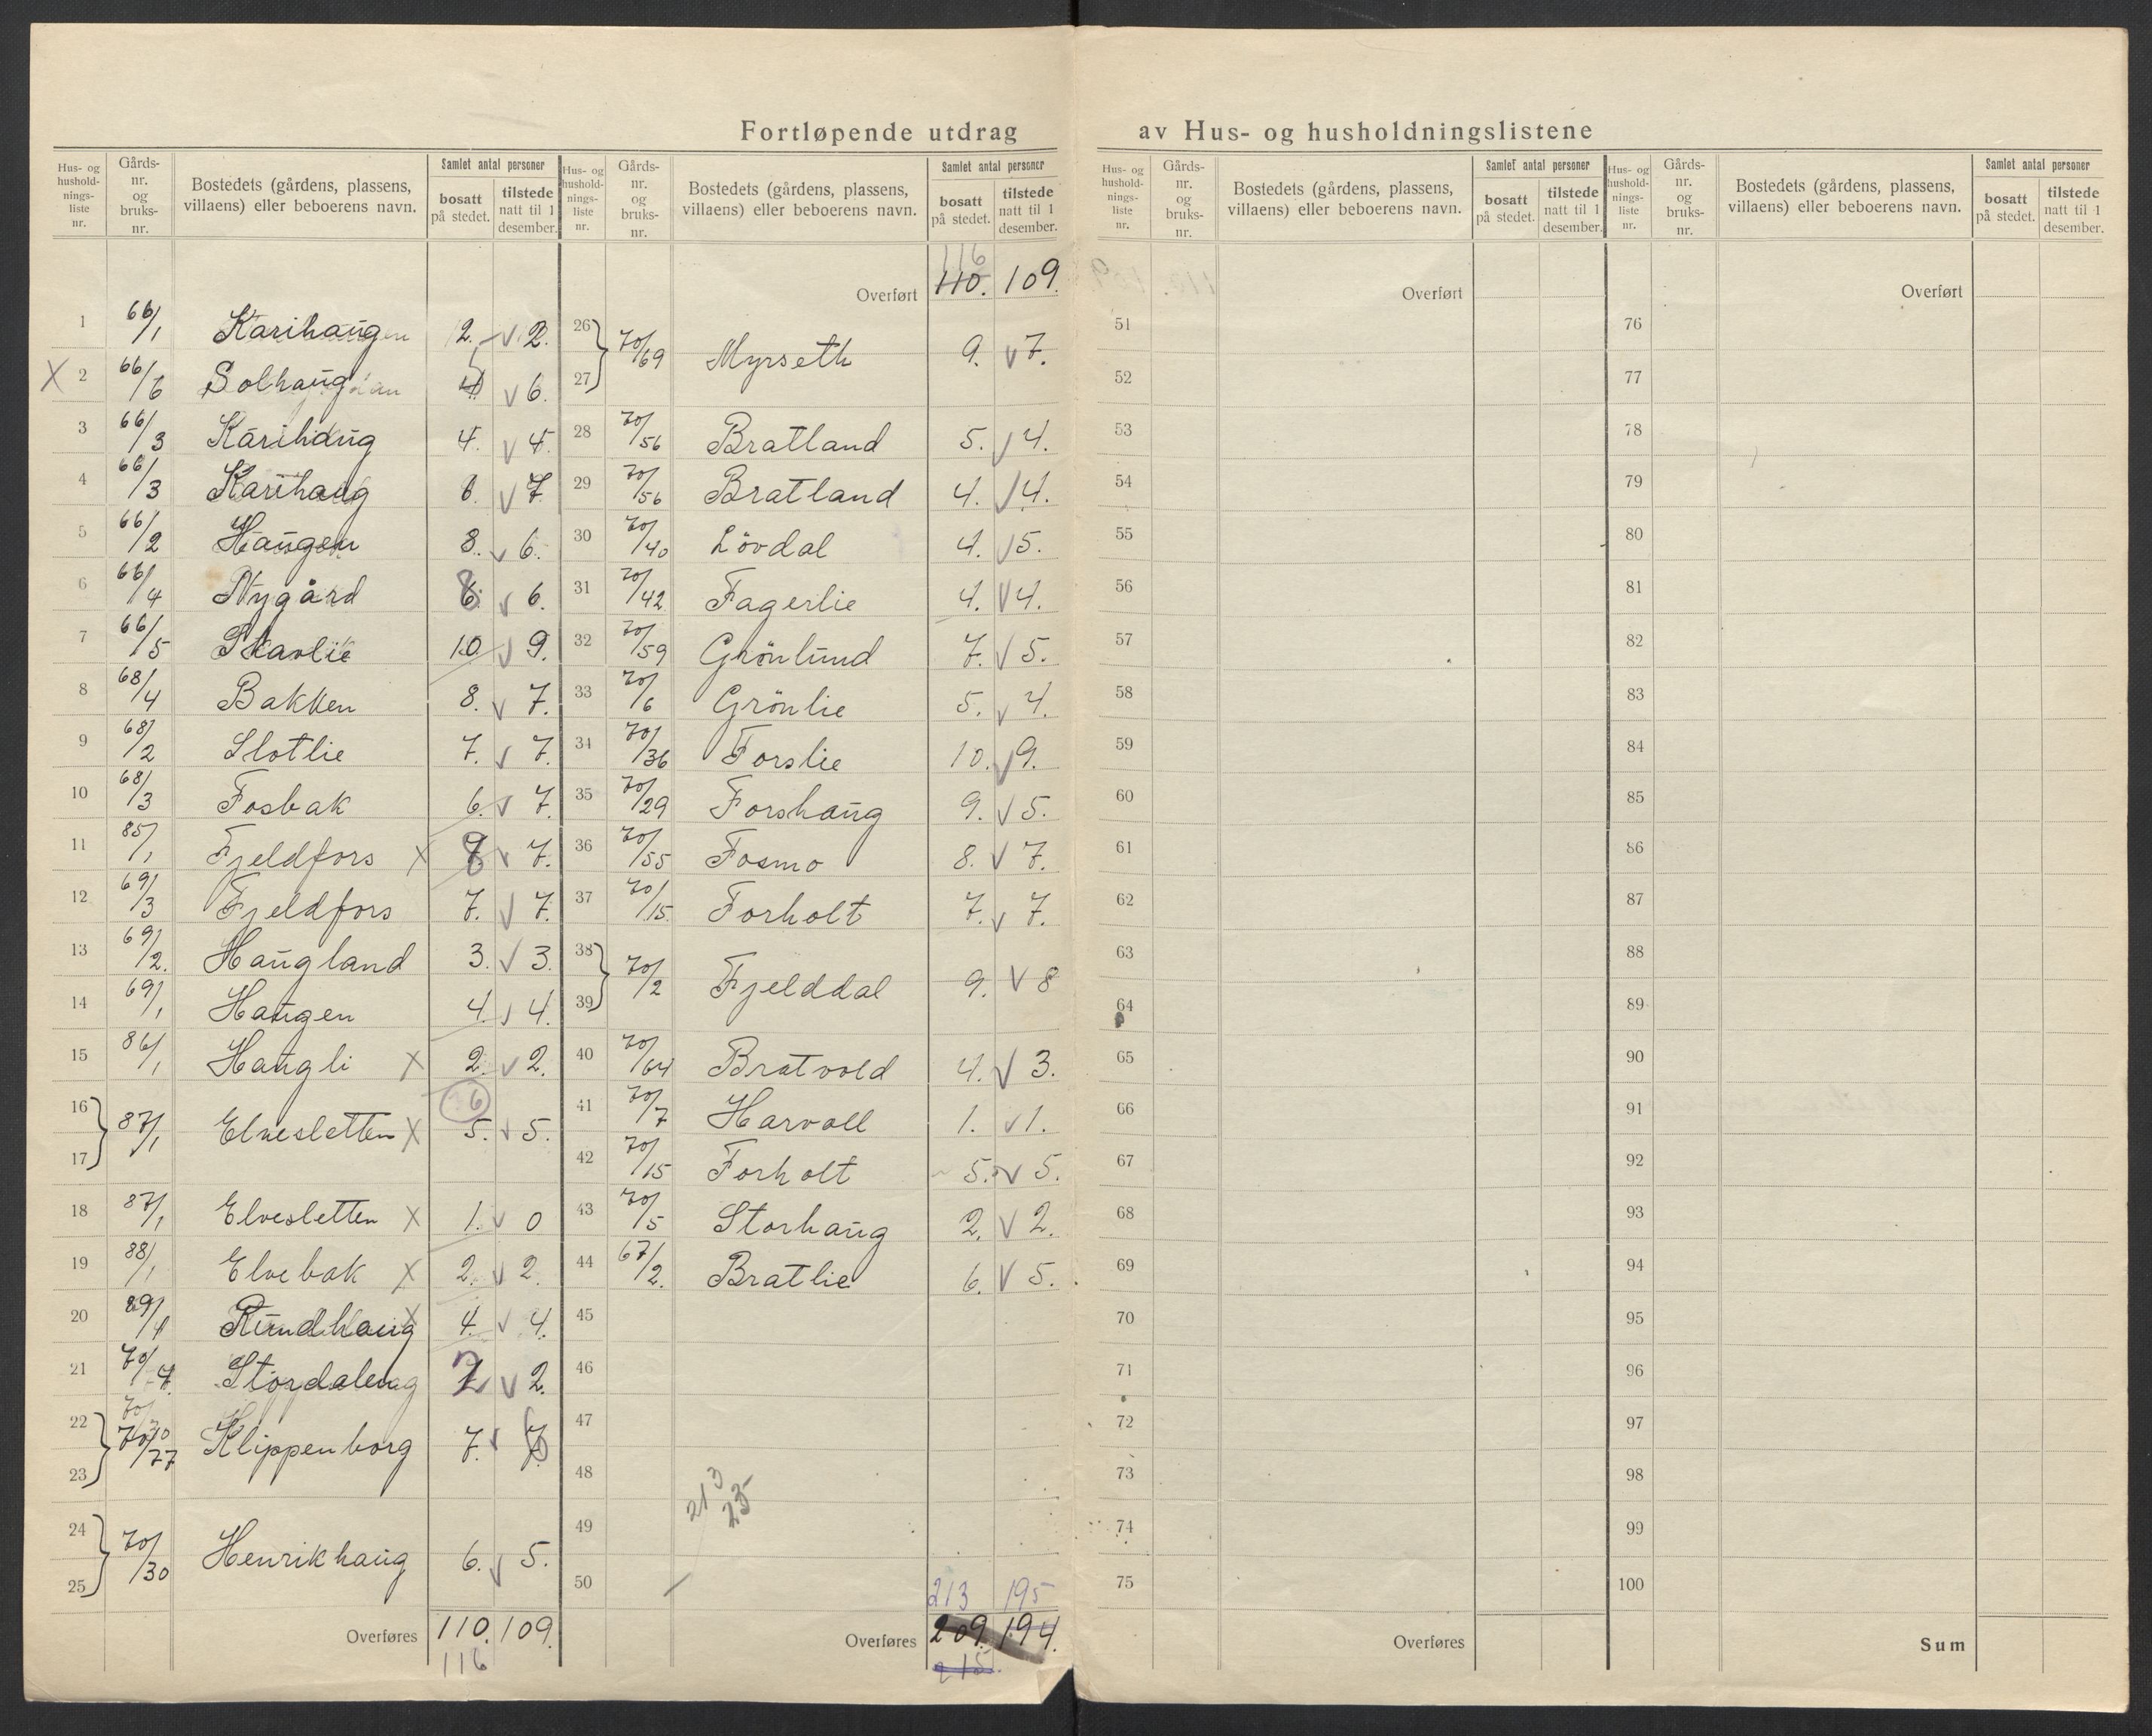 Fortløpende utdrag av Hus- og husholdningslistene
Hus- og hushold-nings-liste nr. | Gårds-nr. og bruks-nr. | Bostedets (gårdens, plassens, villaens) eller beboerens navn. | Samlet antal personer | bosatt på stedet. | tilstede natt til 1 desember.
Hus- og hushold-nings-liste nr. | Gårds-nr. og bruks-nr. | Bostedets (gårdens, plassens, villaens) eller beboerens navn. | Samlet antal personer | bosatt på stedet. | tilstede natt til 1 desember.
Hus- og hushold-nings-liste nr. | Gårds-nr. og bruks-nr. | Bostedets (gårdens, plassens, villaens) eller beboerens navn. | Samlet antal personer | bosatt på stedet. | tilstede natt til 1 desember.
Hus- og hushold-nings-liste nr. | Gårds-nr. og bruks-nr. | Bostedets (gårdens, plassens, villaens) eller beboerens navn. | Samlet antal personer | bosatt på stedet. | tilstede natt til 1 desember.
1 66/1 Karihaugen 2. v 2.
X 2 66/6 Solhaug 5 4 v 6.
3 66/3 Karihaug 4. v 4.
4 66/3 Karihaug 6. v 7
5 66/2 Haugen 8. v 6.
6 66/4 Nygård 8 v 6.
7 66/5 Skavlie 10 v 9.
8 68/4 Bakken 8. v 7.
9 68/2 Slotlie 7. v 7.
10 68/3 Fosbak 6. v 7.
11 85/1 Fjeldfors X 8 v 7.
12 69/3 Fjeldfors 7. v 7.
13 69/2. Haugland 3. v 3.
14 69/1 Haugen 4. v 4.
15 86/1 Haugli X 2. v 2.
16 17 87/1 Elvesletten X 6 5. v 5.
18 87/1 Elvesletten X 1. v 0
19 88/1 Elvebak X 2. v 2.
20 89/1 Rundhaug X 4. v 4.
21 70/4. Stordalen 2 v 2.
22 23 70/77 Klippenborg 7. v 7
24 25 70/30 Henrikhaug 6. v 5.
Overføres 110. 109.
116
116
Overført 110. 109.
26 27 70/69 Myrseth 9. v 7.
28 70/56 Bratland 5. v 4.
29 70/56 Bratland 4. v 4.
30 70/40 Lövdal 4. v 5.
31 70/42 Fagerlie 4. v 4.
32 70/59 Grönlund 7. v 5.
33 70/6 Grönlie 5. v 4.
34 70/36 Forslie 10. v 9.
35 70/29 Forshaug 9. v 5.
36 70/55 Fosmo 8. v 7.
37 70/15. Forholt 7. v 7.
38 39 70/2 Fjelddal 9. v 8
40 70/64 Bratvold 4. v 3.
41 70/7 Harvoll 1. v 1.
42 70/15 Forholt 5. v 5.
43 70/5 Storhaug 2. v 2.
44 67/2. Bratlie 6. v 5.
45
46
47
48
213
23
49
50
213 195
Overføres 209. 194.
215.
Overført
51
52
53
54
55
56
57
58
59
60
61
62
63
64
65
66
67
68
69
70
71
72
73
74
75
Overføres
Overført
76
77
78
79
80
81
82
83
84
85
86
87
88
89
90
91
92
93
94
95
96
97
98
99
100
Sum